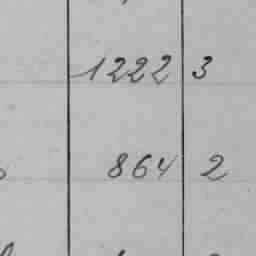 1222 3
864 2